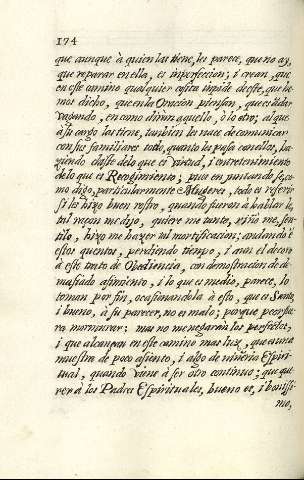 174
que aunque à quien las tiene, les parece, que no ay,
que reparar en ella, es imperfeccion; i crean, que
en este camino qualquier cosita impide desse, que he-
mos dicho, que en la Oracion piensan, que es estar
vagando, en como diran aquello, ò lo otro; al que
à su cargo las tiene, tambien les nace de comunicar
con sus familiares todo, quanto les passa con ellos, ha-
ziendo clase de lo que es virtud, i entretenimiento
de lo que es Rendimiento; pues en juntandose, co-
mo digo, particularmente Mugeres, todo es referir
si les hizo buen rostro, quando fueron à hablarle,
tal razon me dijo, quiere me tanto, riño me, sen-
tilo, hizo me hazer tal mortificacion; andando en
estos quentos, perdiendo tiempo, i aun el decoro
à este trato de Obediencia, con demostracion de de-
masiado asimiento, i lo que es medio, parece, lo
toman por fin, ocasionandola à esto, que es Santo,
i bueno, à su parecer, no es malo; porque no es pa-
ra murmurar: mas no me negaràn los perfectos,
i que alcançan en este camino mas luz, que es una
muestra de poco asiento, i algo de niñeria Espiri-
tual, quando viene à ser otro continuo; que que-
rer à los Padres Espirituales, bueno es, i bonissi-
mo,